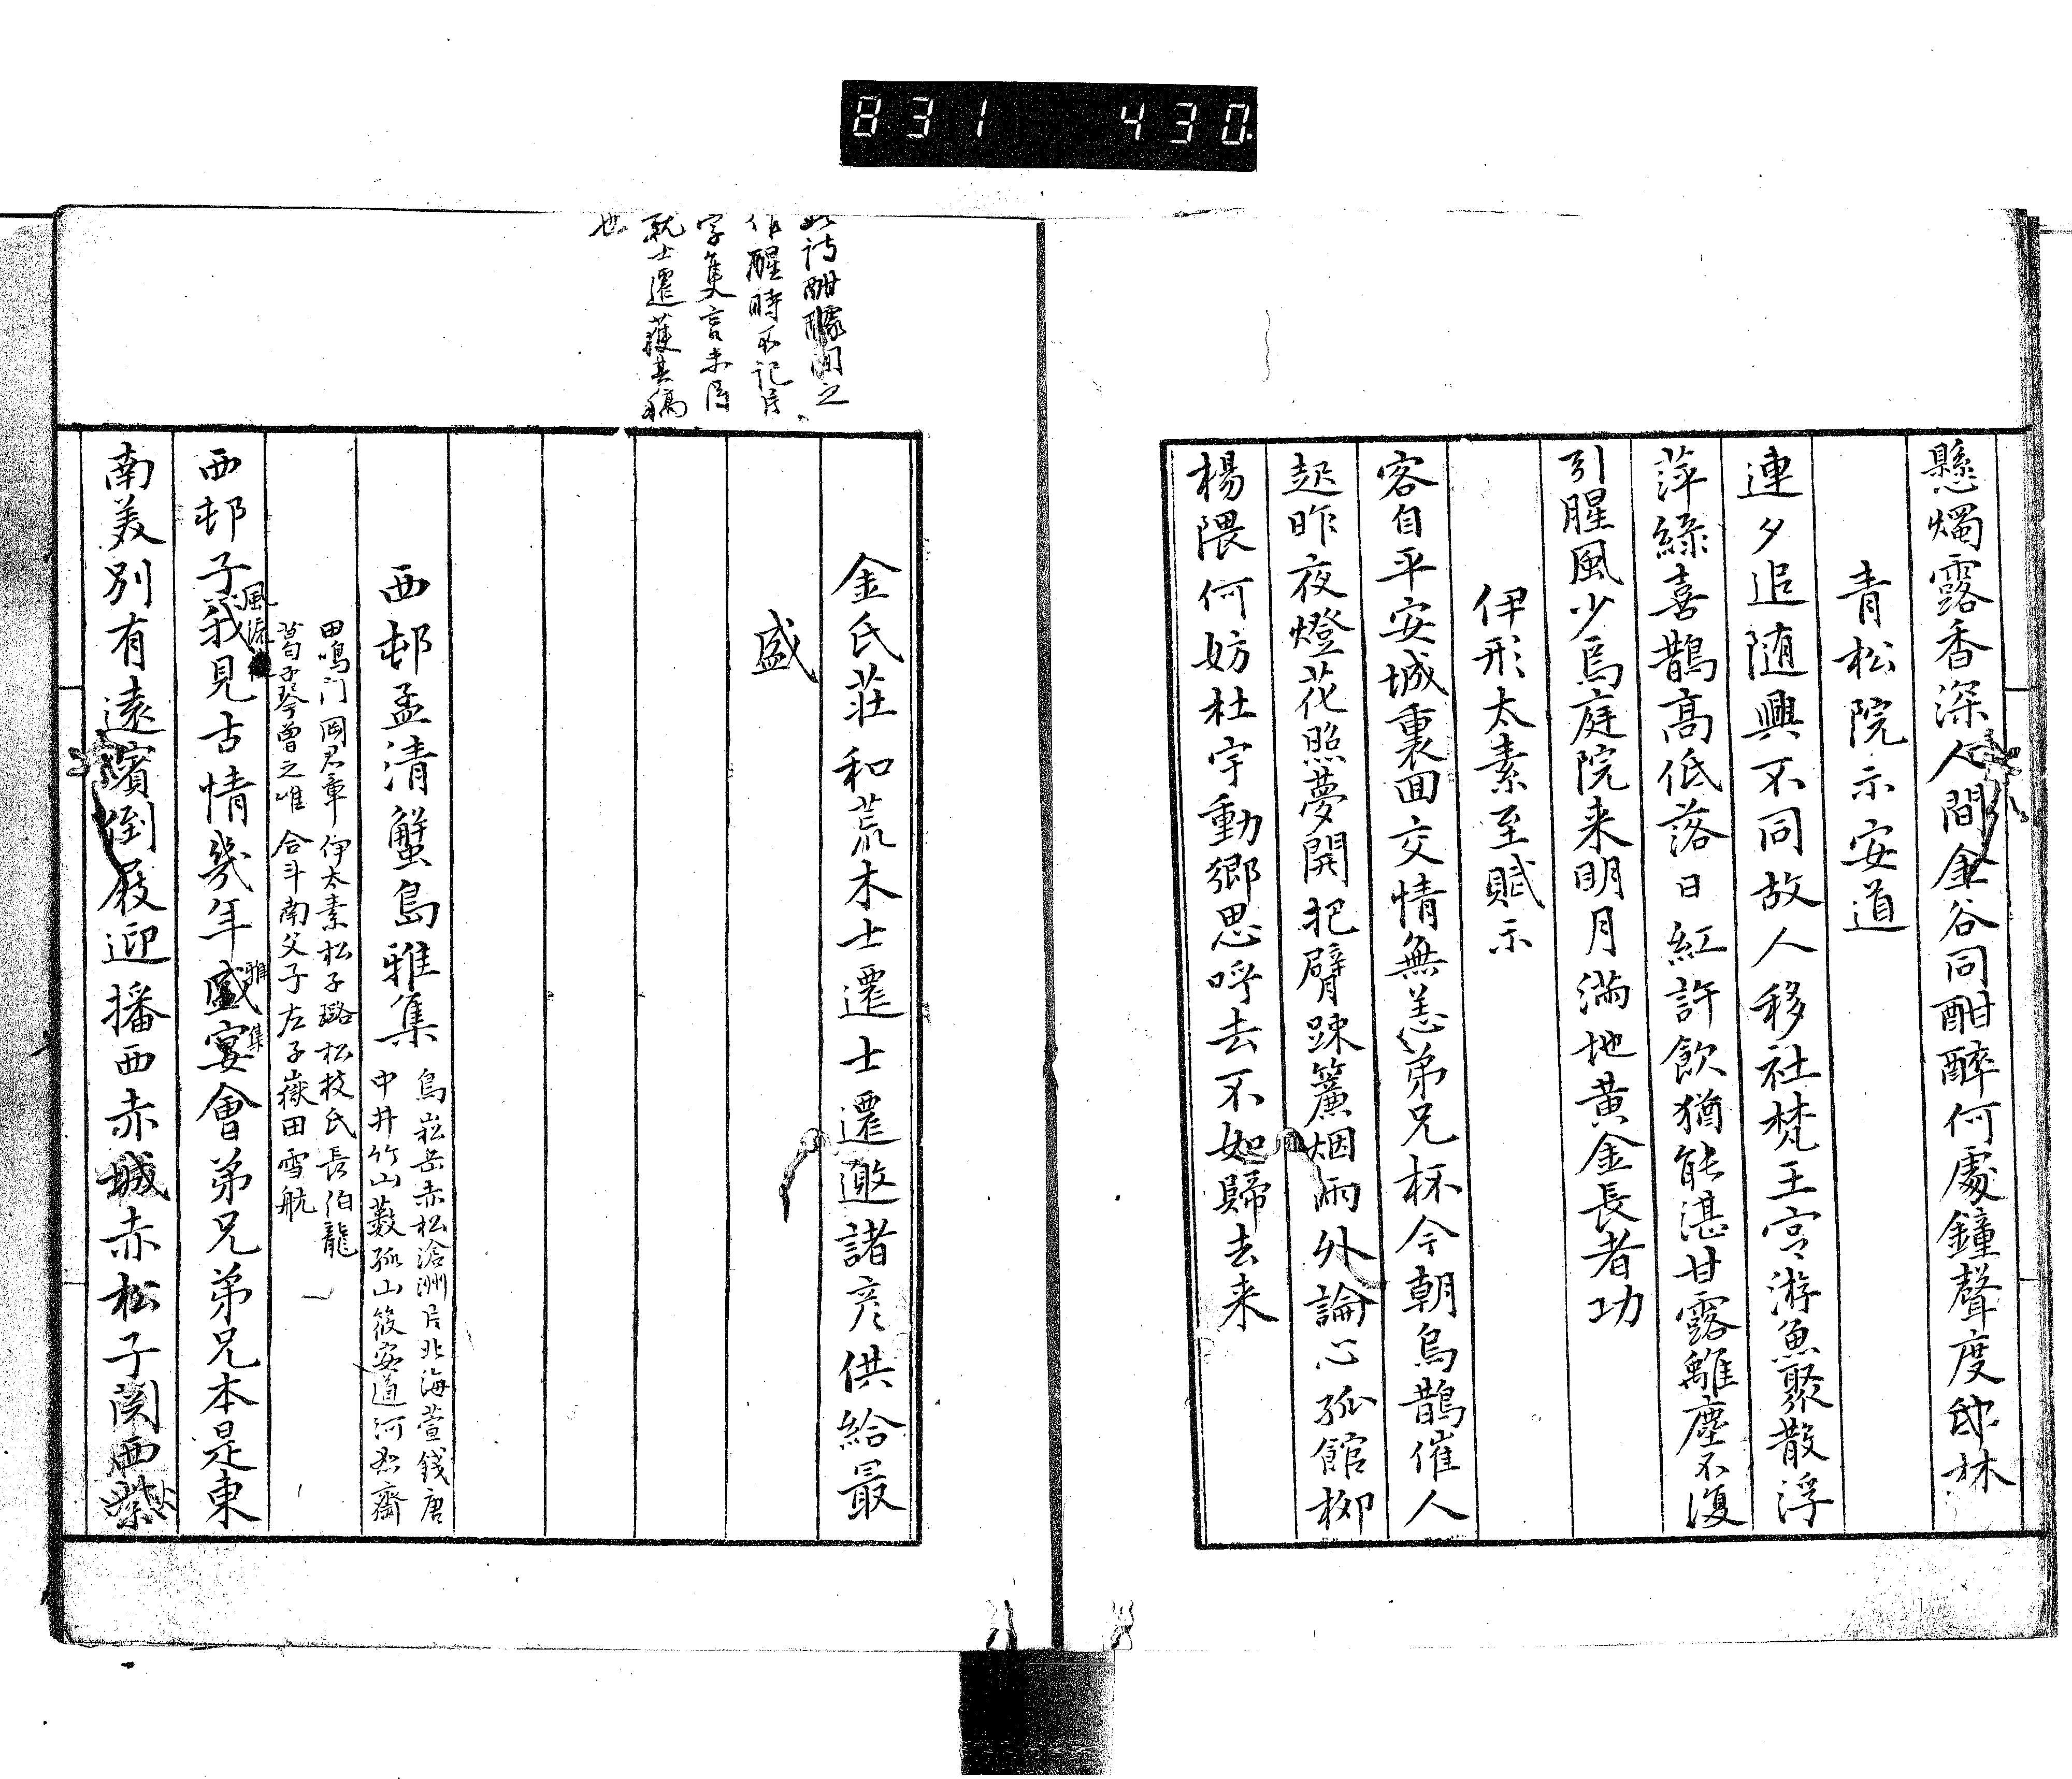 831 430
懸燭露香深人間金谷同酣醉何處鐘聲度邸林
青松院示安道
連夕追随興不同故人移社梵王宮游魚聚散浮
萍緑喜鵲高低落日紅許飲猶能湛甘露離塵不復
引腥風少焉庭院来明月満地黄金長者功
伊形太素至賦示
客自平安城裏囬交情無恙弟兄杯今朝烏鵲催人
起昨夜燈花照夢開把臂踈簾烟雨外論心孤館柳
楊隈何妨杜宇動郷思呼去不如歸去来
此詩酣䣰間之
作醒時不記片
字隻言未得
就士遷獲其稿
也
金氏荘和荒木士遷士遷邀諸彦供給最
盛
西邨孟清蟹島雅集
鳥崧岳赤松滄洲片北海萱錢唐
中井竹山藪孤山筱安道河忍齋
田鳴门岡君章伊太素松子璐松枝氏長伯龍
葛子琴曽之唯合斗南父子左子嶽田雪航
風流
西邨子我見古情幾年盛宴會弟兄弟兄本是東
雅集
南美別有遠濱倒屐迎播西赤城赤松子関西紫